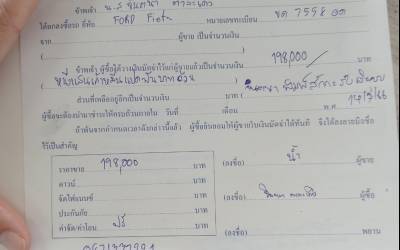 ข้าพเจ้า น.ส
ได้ตกลงซื้อรถ ยี่ห้อ FORD Fiesta หมายเลขทะเบียน ขด 7558
จาก ( ) ผู้ขาย เป็นจำนวนเงิน
198,000 บาท
ข้าพเจ้า ผู้ซื้อได้วางเงินมัดจำไว้แก่ผู้ขายแล้วเป็นจำนวนเงิน
( หนึ่งแสนเก้าหมื่นแปดพันบาทถ้วน )
ส่วนที่เหลืออยู่อีกเป็นจำนวนเงิน บาท
ผู้ซื้อจะต้องนำมาชำระให้ครบถ้วนภายใน วันที่ เดือน พ.ศ.
ถ้าพ้นจากกำหนดเวลาดังกล่าวนี้แล้ว ผู้ซื้อยินยอมให้ผู้ขายริบเงินมัดจำได้ทันที จึงได้ลงลายมือชื่อ
ไว้เป็นสำคัญ
ราคาขาย 198,000 บาท
ดาวน์ บาท
จัดไฟแนนซ์ บาท
ประกันภัย บาท
ค่าจัด/ค่าโอน ฟรี บาท
(ลงชื่อ) น้ำ ผู้ขาย
(ลงชื่อ) ผู้ซื้อ
(ลงชื่อ) พยาน